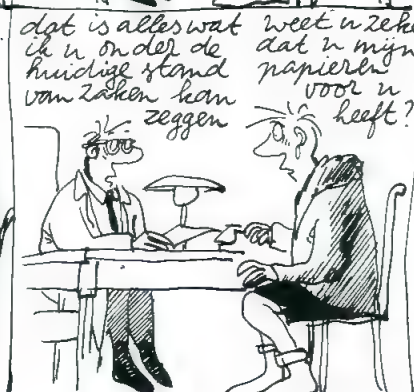 dat is alles wat
ik u onder de
huidige stand
van zaken kan
zeggen
weet u zeke
dat u mijn
papieren
voor u
heeft?